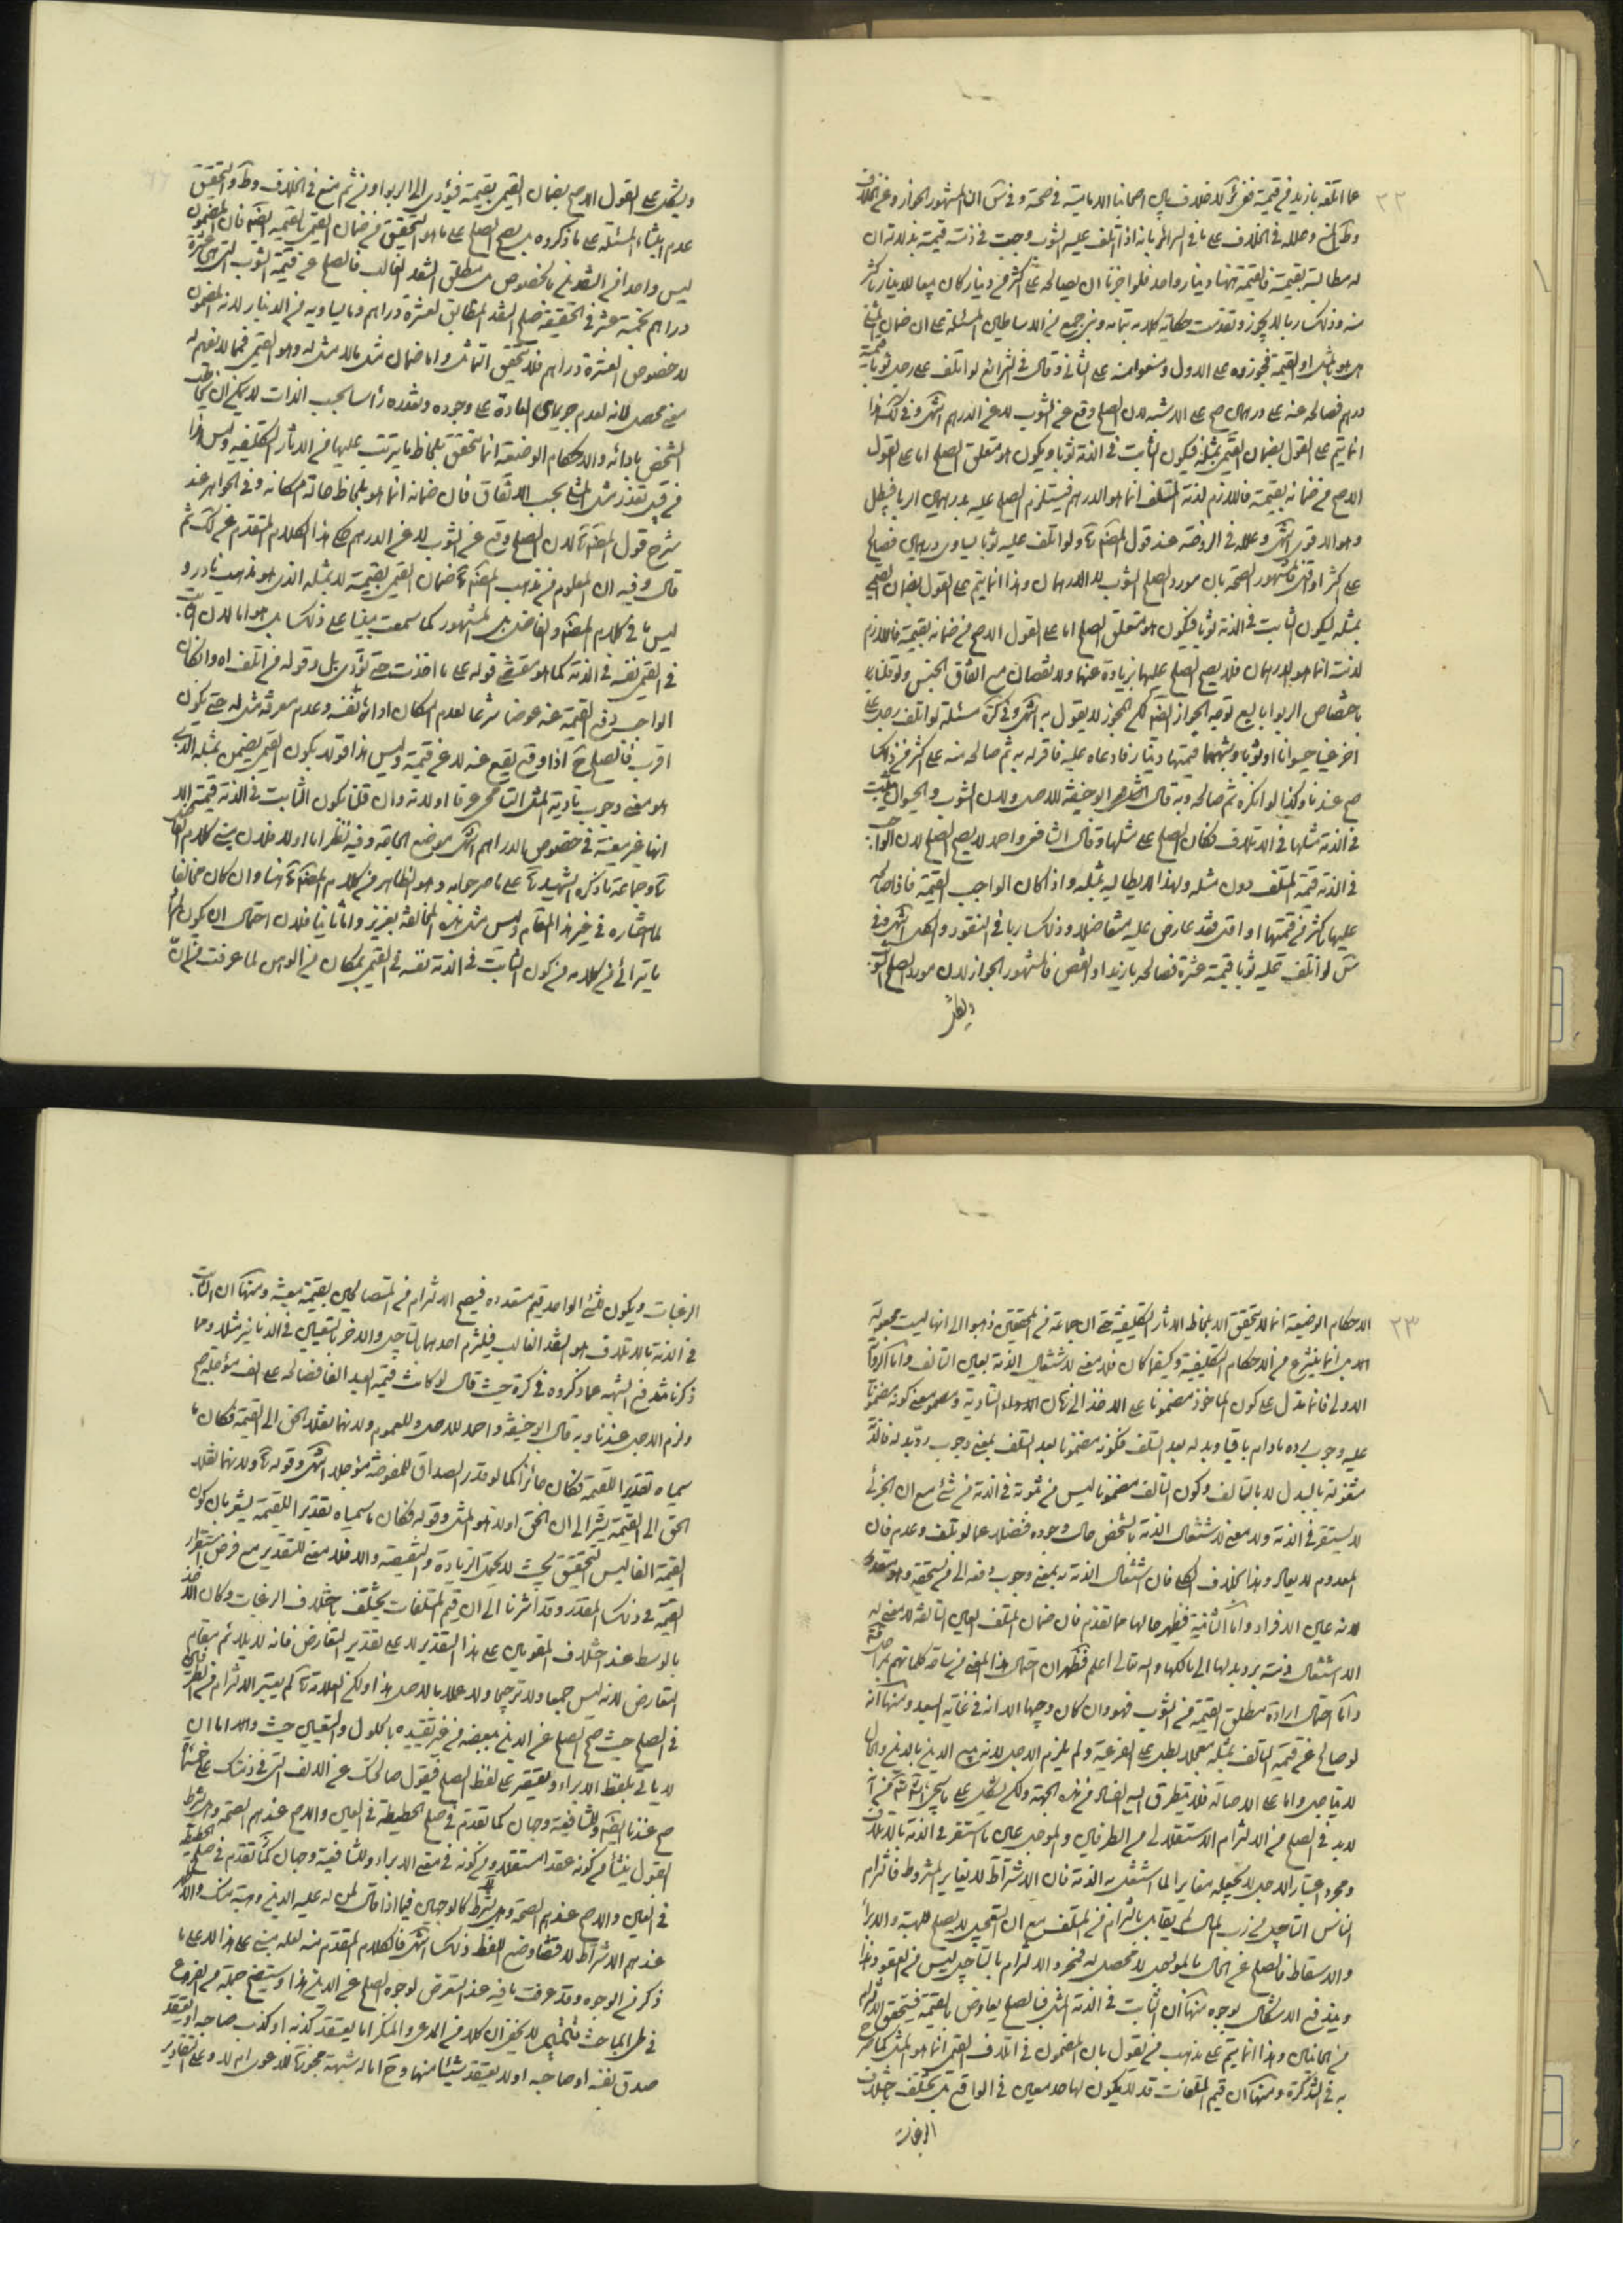 ٢٢
عما اتلفه بازيد من قيمته ففي كره لا خلاف بين اصحابنا الامامية في صحته وفي شن ان المشهور الجواز وعن الخلاف
وط المنع وعلله في الخلاف على ما في السرائر بانه اذا اتلف عليه الثوب وجبت في ذمته قيمته بدلالة ان
له مطالبته بقيمته فالقيمة ههنا دينار واحد فلو اجزنا ان يصالحه على اكثر من دينار كان بيعا للدينار باكثر
منه وذلك ربا لا يجوز وتقدمت حكاية كلامه بتمامه وبنى جمع من الاساطين المسئلة على ان ضمان القيمي
هل هو بالمثل او القيمة فجوزوه على الاول ومنعوا منه على الثاني قال في الشرائع لو اتلف على رجل ثوبا قيمته
درهم فصالحه عنه على درهمين صح على الاشبه لان الصلح وقع عن الثوب لا عن الدرهم انتهى وفي لك هذا
انما يتم على القول بضمان القيمي بمثله فيكون الثابت في الذمة ثوبا ويكون هو متعلق الصلح اما على القول
الاصح من ضمانه بقيمته فاللازم لذمة المتلف انما هو الدرهم فيستلزم الصلح عليه بدرهمين الربا فيبطل
وهو الاقوى انتهى وعلله في الروضة عند قول المصنف ولو اتلف عليه ثوبا يساوي درهمين فصالح
على اكثر او اقل فالمشهور الصحة بان مورد الصلح الثوب لا الدرهمان وهذا انما يتم على القول بضمان القيمي
بمثله ليكون الثابت في الذمة ثوبا فيكون هو متعلق الصلح اما على القول الاصح من ضمانه بقيمته فاللازم
لذمته انما هو الدرهمان فلا يصح الصلح عليهما بزيادة عنهما ولا نقصان مع اتفاق الجنس ولو قلنا
باختصاص الربا بالبيع توجه الجواز ايضا لكن المجوز لا يقول به انتهى وفي كره مسئلة لو اتلف رجل على
اخر عينا حيوانا او ثوبا وشبههما قيمتها دينار فادعاه عليه فاقر له به ثم صالحه منه على اكثر من ذلك
صح عندنا وكذا لو انكره ثم صالحه وبه قال ابو حنيفة للاصل ولان الثوب والحيوان يثبت
في الذمة مثلها في الاتلاف فكان الصلح على مثلها وقال الشافعي واحمد لا يصح الصلح لان الواجب
في الذمة قيمة المتلف دون مثله ولهذا لا يطالب بمثله واذا كان الواجب القيمة فاذا صالحه
عليها باكثر من قيمتها او اقل فقد عارض عليه متفاضلا وذلك ربا في النقود والكل انتهى وفي
شن لو اتلف عليه ثوبا قيمته عشرة فصالحه بازيد او انقص فالمشهور الجواز لان مورد الصلح الثوب
ويشكل
ويشكل على القول الاصح بضمان القيمي بقيمته فيؤدي الى الربا ومن ثم منع في الخلاف وط والتحقيق
عدم ابتناء المسئلة على ما ذكروه بل يصح الصلح على ما هو التحقيق من ضمان القيمي بالقيمة ايضا فان المضمون
ليس واحدا من النقدين بالخصوص بل مطلق النقد الغالب فالصلح عن قيمة الثوب التي هي عشرة
دراهم بخمسة عشر في الحقيقة صلح النقد المطابق لعشرة دراهم وما يساويه من الدينار لانه المضمون
لا خصوص العشرة دراهم فلا يتحقق التماثل واما ضمان مثل ما لا مثل له وهو القيمي فمما لا نفهم له
معنى محصل لانه لعدم جريان العادة على وجوده وتعذره رأسا بحسب الذات لا يمكن ان يخاطب
الشخص بادائه والاحكام الوضعية انما تتحقق بلحاظ ما يترتب عليها من الاثار التكليفية وليس هذا
من قبيل تعذر مثل المثلي بحسب الاتفاق فان ضمانه انما هو بلحاظ حالة امكانه وفي الجواهر عند
شرح قول المصنف لان الصلح وقع عن الثوب لا عن الدرهم حكى هذا الكلام المتقدم عن لك ثم
قال وفيه ان المعلوم من مذهب المصنف ضمان القيمي بقيمته لا بمثله الذي هو مذهب نادر و
ليس ما في كلام المصنف والفاضل بل المشهور كما سمعت مبنيا على ذلك بل هو اما لان الثابت
في القيمي نفسه في الذمة كما هو مقتضى قوله على ما اخذت حتى تؤدى بل وقوله من اتلف اه وان كان
الواجب دفع القيمة عنه عوضا شرعا لعدم امكان اداء نفسه وعدم معرفة مثل له حتى يكون
اقرب فالصلح ح اذا وقع يقع عنه لا عن قيمته وليس هذا قولا بكون القيمي يضمن بمثله الذي
هو بمعنى وجوب تأدية المثل التام عرفا اولا وان قلنا يكون الثابت في الذمة قيمته الا
انها غير معينة في خصوص الدراهم انتهى موضع الحاجة وفيه نظر اما اولا فلان مبنى كلام الفاضل
وجماعة ما ذكره الشهيد على ما صرحوا به وهو الظاهر من كلام المصنف هنا وان كان مخالفا
لما اختاره في غير هذا المقام وليس مثل هذه المخالفة بعزيز واما ثانيا فلان احتمال ان يكون المراد
ما يتراءى من كلامه من كون الثابت في الذمة نفسه في القيمي بمكان من الوهن لما عرفت من ان
٢٣
الاحكام الوضعية انما لا تتحقق الا بلحاظ الاثار التكليفية حتى ان جماعة من المحققين ذهبوا الى انها ليست مجعولة
اصلا بل انما ينتزع من الاحكام التكليفية وكيفما كان فلا معنى لاشتغال الذمة بعين التالف واما الرواية
الاولى فانما تدل على كون المأخوذ مضمونا على الاخذ الى زمان التأدية ومعنى كونه مضمونا
عليه وجوب رده ما دام باقيا وبدله بعد التلف فكونه مضمونا بعد التلف بمعنى وجوب رد بدله فالذمة
مشغولة بالبدل لا بالتالف وكون التالف مضمونا ليس من ثبوته في الذمة في شئ مع ان الجزئي
لا يستقر في الذمة ولا معنى لاشتغال الذمة بالشخص حال وجوده فضلا عما لو تلف وعدم فان
المعدوم لا يعاد وهذا بخلاف الكلي فان اشتغال الذمة به بمعنى وجوب دفعه الى مستحقه وهو مقدور
لانه عين الافراد واما الثانية فيظهر حالها مما تقدم فان ضمان المتلف العين التالفة لا معنى له
الا اشتغال ذمته برد بدلها الى مالكها والله تعالى اعلم فظهر ان احتمال هذا المعنى من ساحة كلماتهم بمراحل
واما احتمال ارادة مطلق القيمة من الثوب فهو وان كان وجيها الا انه في غاية البعد ومنها انه
لو صالح عن قيمة المتالف بمثله معجلا بطل على الفرعية ولم يلزم الاجل لانه بيع الدين بالدين والحال
لا يتأجل واما على الاصالة فلا يتطرق اليه الفساد من هذه الجهة ولكن يشكل على ما سيجئ انشاء الله من انه
لا بد في الصلح من الالتزام الاستقلالي من الطرفين والمؤجل عين ما استقر في الذمة بالاتلاف
ومجرد اعتبار الاجل لا يجعله مغايرا لما اشتغل به الذمة فان الاشتراط لا يغاير المشروط فالتزام
التأجيل من رب المال لا يقابل بالتزام من المتلف مع ان التعجيل لا يصلح للهبة والابراء
والاسقاط فالصلح عن الحال بالمؤجل لا محصل له فمجرد الالتزام بالتأجيل ليس من العقود وهذا
ويندفع الاشكال بوجوه منها ان الثابت في الذمة المثل فبالصلح يعاوض بالقيمة فيتحقق الالتزام
من الجانبين وهذا انما يتم على مذهب من يقول بان المضمون في اتلاف القيمي انما هو المثل كما صرح
به في التذكرة ومنها ان قيم المتلفات قد لا يكون لها حد معين في الواقع بل يختلف باختلاف
الرغبات
الرغبات ويكون للشئ الواحد قيم متعددة فيصح الالتزام من المتصالحين بقيمة معينة ومنها ان الثابت
في الذمة بالاتلاف هو النقد الغالب فيلتزم احدهما بالتأجيل والاخر بالتعيين في الدنانير مثلا ومما
ذكرنا يندفع الشبهة عما ذكروه في كره حيث قال لو كانت قيمة العبد الفا فصالحه على الف مؤجلة صح
ولزم الاجل عندنا وبه قال ابو حنيفة واحمد للاصل وللعموم ولانهما نقلا الحق الى القيمة فكان ما
سمياه تقديرا للقيمة فكان جائزا كما لو قدر الصداق للمفوضة مؤجلا انتهى وقوله ولانهما نقلا
الحق الى القيمة يشير الى ان الحق اولا هو المثل وقوله فكان ما سمياه تقديرا للقيمة يشعر بان كون
القيمة الفا ليس التحقيق بحيث لا يحتمل الزيادة والنقيصة والا فلا معنى للتقدير مع فرض استقرار
القيمة في ذلك المقدر وقد اشرنا الى ان قيم المتلفات يختلف باختلاف الرغبات وكان الاخذ
بالوسط عند اختلاف المقومين على هذا التقدير لا على تقدير التعارض فانه لا يلائم مقام
التعارض لانه ليس جمعا ولا ترجيحا ولا عملا بالاصل هذا ولكن العلامة لم يعتبر الالتزام من الطرفين
في الصلح حيث صحح الصلح عن الدين ببعضه من غير تقييده بالحلول والتعيين حيث قال اما ان
لا يأتي بلفظ الابراء ويقتصر على لفظ الصلح فيقول صالحتك عن الالف التي في ذمتك على خمسمائة
صح عندنا ايضا وللشافعية وجهان كما تقدم في صلح الحطيطة في العين والاصح عندهم الصحة وهل يشترط
القبول ينشأ من كونه عقدا مستقلا ومن كونه في معنى الابراء وللشافعية وجهان كما تقدم في صلح الحطيطة
في العين والاصح عندهم الصحة وهل يشترط كالوجهين فيما اذا قال لمن له عليه الدين وهبته منك والاظهر
عندهم الاشتراط لاقتضاء وضع اللفظ ذلك انتهى فالكلام المتقدم منه لعله مبني على هذا لا على ما
ذكر من الوجوه وقد عرفت ما فيه عند التعرض لوجوه الصلح عن الدين هذا وسيتضح جملة من الفروع
في طي المباحث تتميم لا يخفى ان كلا من المدعي والمنكر اما يعتقد كذبه او كذب صاحبه او يعتقد
صدق نفسه او صاحبه اولا يعتقد شيئا منها وح اما له شبهة مجوزة للدعوى ام لا وعلى التقادير